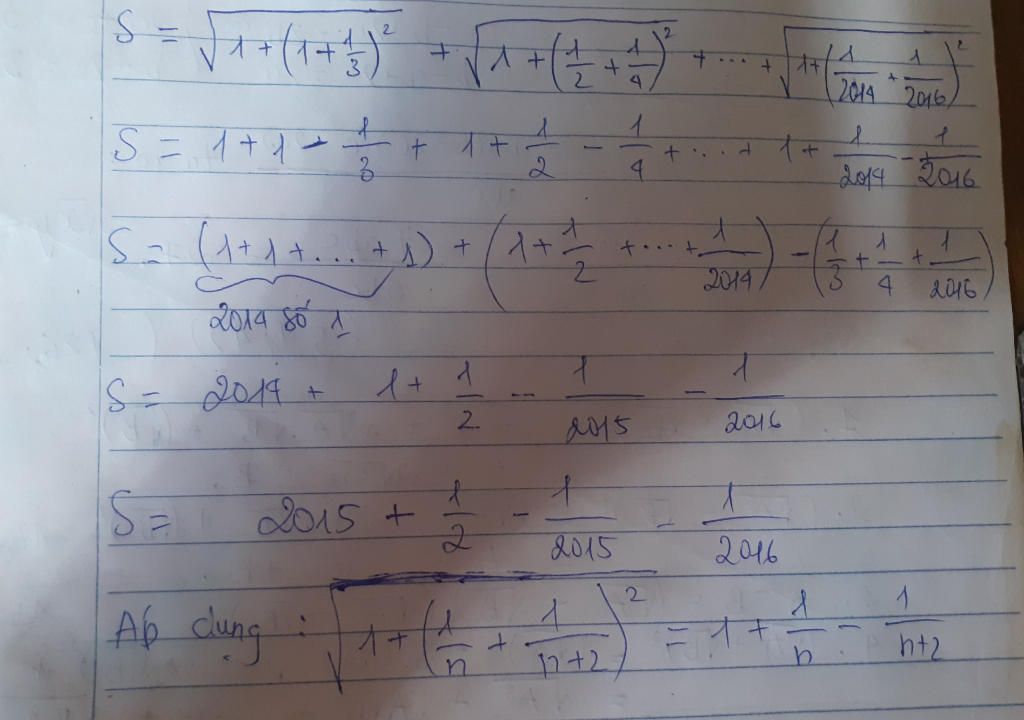 S = √(1+(1+1/3)²) + √(1+(1/2+1/4)²) + ... + √(1+(1/2014+1/2016)²)
S = 1+1 - 1/3 + 1+1/2 - 1/4 + ... + 1+1/2014 - 1/2016
S = (1+1+...+1) + (1+1/2 + ... + 1/2014) - (1/3+1/4+1/2016)
2014 số 1
S = 2014 + 1+1/2 - 1/2015 - 1/2016
S = 2015 + 1/2 - 1/2015 - 1/2016
Áp dụng : √(1+(1/n + 1/(n+2))²) = 1 + 1/n - 1/(n+2)